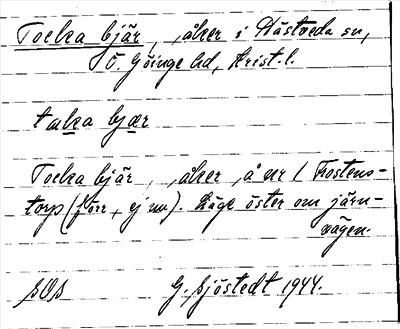 Toeka bjär, åker i Hästveda sn,
Ö. Göinge hd, Krist. l.
taka bjær
Toeka bjär, åker, å nr 1 Frostens-
torp (förr, ej nu). Läge öster om järn-
vägen.
SOS G. Sjöstedt 1944.